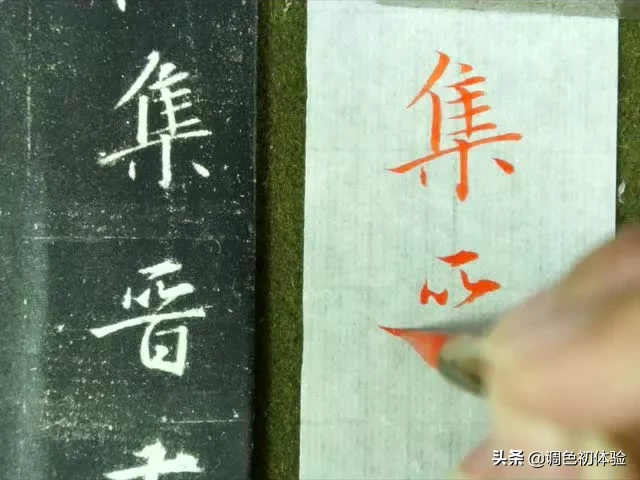 集
晋
集
头条 @调色初体验